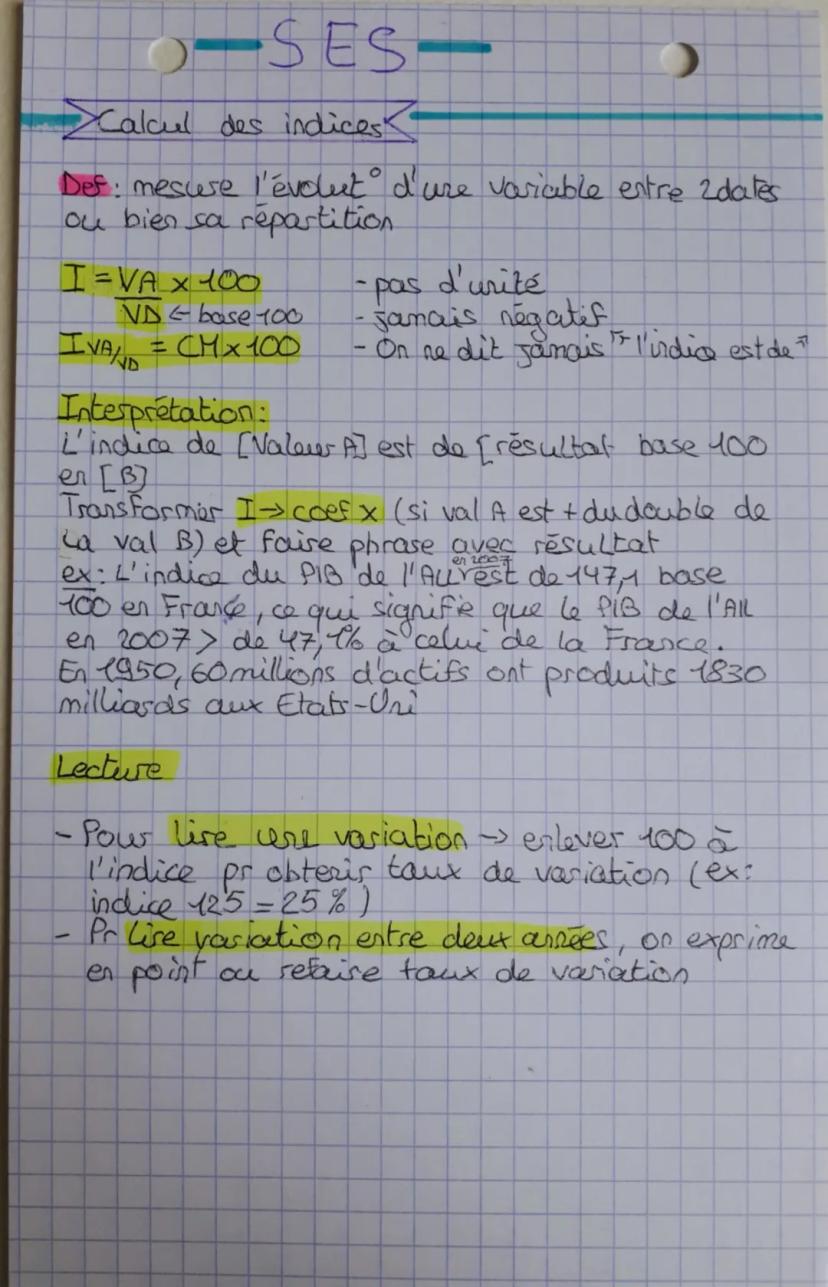 SES
Calcul des indices
Def : mesure l'évolut° d'une variable entre 2 dates
ou bien sa répartition
I = VA x 100 - pas d'unité
VD ← base 100 - jamais négatif
I VA/VD = CM x 100 - On ne dit jamais "l'indice est de"
Interprétation :
L'indice de [Valeur A] est de [résultat base 100
en [B]
Transformer I → coef x (si val A est + du double de
la val B) et faire phrase avec résultat
en 2007
ex : L'indice du PIB de l'All est de 147,1 base
100 en France, ce qui signifie que le PIB de l'All
en 2007 > de 47,1% à celui de la France.
En 1950, 60 millions d'actifs ont produits 1830
milliards aux Etats-Uni
Lecture
- Pour lire une variation → enlever 100 à
l'indice pr obtenir taux de variation (ex :
indice 125 = 25 %)
- Pr lire variation entre deux années, on exprime
en point ou refaire taux de variation